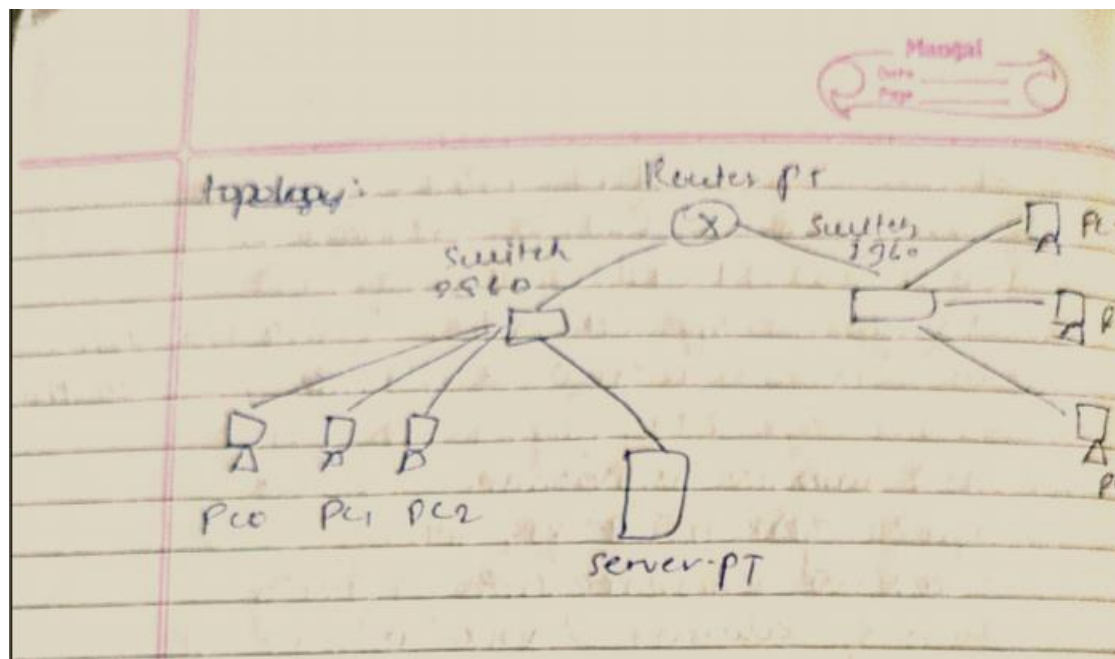 Mangal
Date
Page
topology:
Router PT
Switch
Switch
PC
P
P
PC0 PC1 PC2
Server-PT